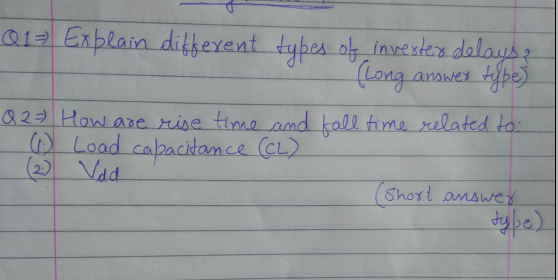 Q1⇒ Explain different types of inverter delays?
(Long answer type)
Q2⇒ How are rise time and fall time related to:
(1) Load capacitance (CL)
(2) Vdd
(Short answer
type)